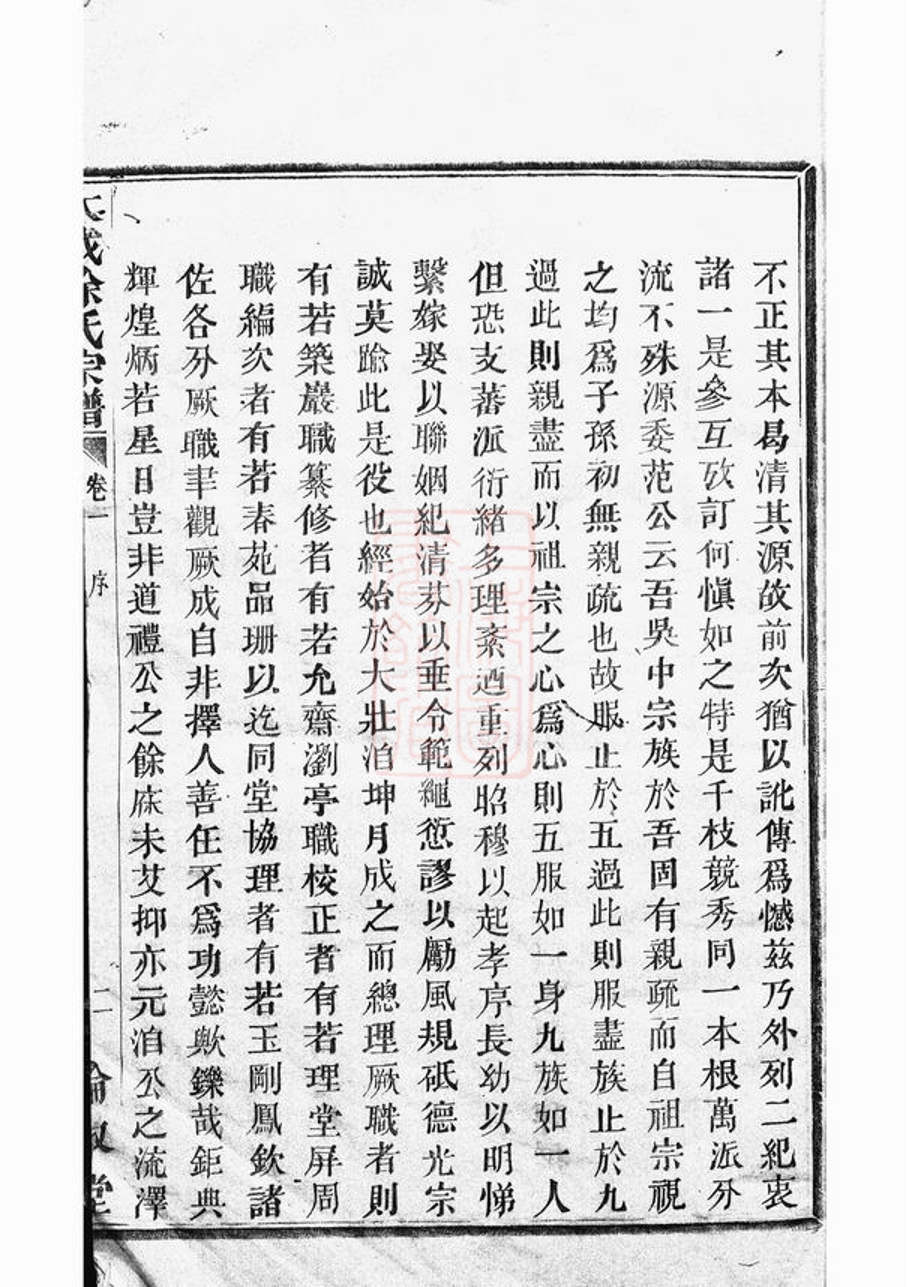 不正其本曷清其源故前次猶以訛傳爲憾茲乃外列二紀衷
諸一是參互攷訂何愼如之特是千枝競秀同一本根萬派分
流不殊源委范公云吾吳中宗族於吾固有親疏而自祖宗視
之均爲子孫初無親疏也故服止於五過此則服盡族止於九
過此則親盡而以祖宗之心爲心則五服如一身九族如一人
但恐支蕃派衍緒多理紊迺重列昭穆以起孝序長幼以明悌
繫嫁娶以聯姻紀清芬以垂令範繩愆謬以勵風規砥德光宗
誠莫踰此是役也經始於大壯洎坤月成之而總理厥職者則
有若築巖職纂修者有若允齋瀏亭職校正者有若理堂屏周
職編次者有若春苑品珊以迄同堂協理者有若玉剛鳳欽諸
佐各分厥職聿觀厥成自非擇人善任不爲功懿歟鑠哉鉅典
輝煌炳若星日豈非道禮公之餘庥未艾抑亦元洎公之流澤
余氏宗譜 卷一 序 二 堂